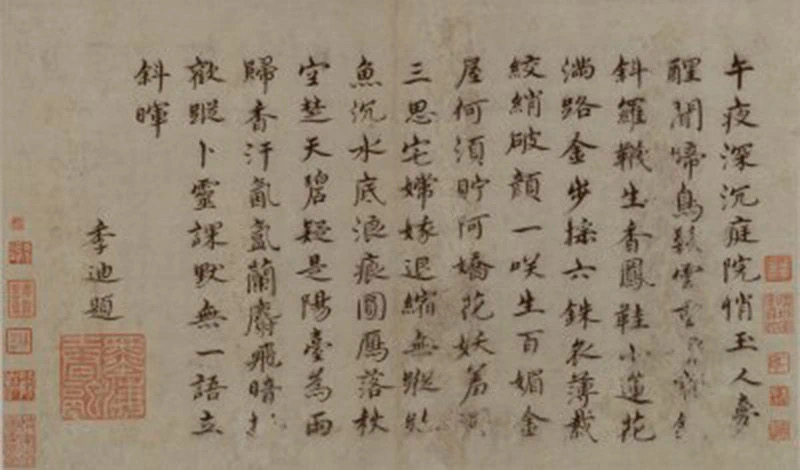 午夜深沉庭院悄玉人夢
醒聞啼鳥鬆雲
斜羅襪生香鳳鞋小蓮花
滿路金步搖六銖衣薄裁
絞綃破顏一咲生百媚金
屋何須貯阿嬌花妖
三思宅嫦娥退縮無蹤
魚沉水底浪痕圓鴈落秋
空楚天碧疑是陽臺為雨
歸香汗氤氳蘭麝飛暗
歡蹤卜靈課默無一語立
斜暉
李迪題